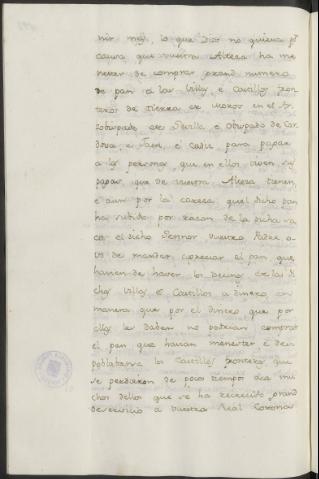 nir mas, lo que Dios no quiera, por
causa que vuestra Alteza ha me
nester de comprar grand numero
de pan a las Villas, e Castillos fron
teros de tierra de moros en el Ar
zobispado de Sevilla, e obispado de Cor
dova, e Jaen, e Cadiz para pagar
a las personas, que en ellos viven sus
pagas, que de vuestra Alteza tienen,
e aun por la careza, qual dicho pan
ha subido por razon de la dicha sa
ca el dicho Sennor vuestro Padre o
vo de mandar apreciar el pan, que
havien de haver los Vecinos de las di
chas Villas, e Castillos a dinero en
manera que por el dinero que por
ello les daban no podrian comprar
el pan que havian menester, e des
poblabanse los Castillos fronteros, que
se perdieron de poco tiempo aca mu
chos dellos que se ha recrecido grand
deservicio a vuestra Real Corona